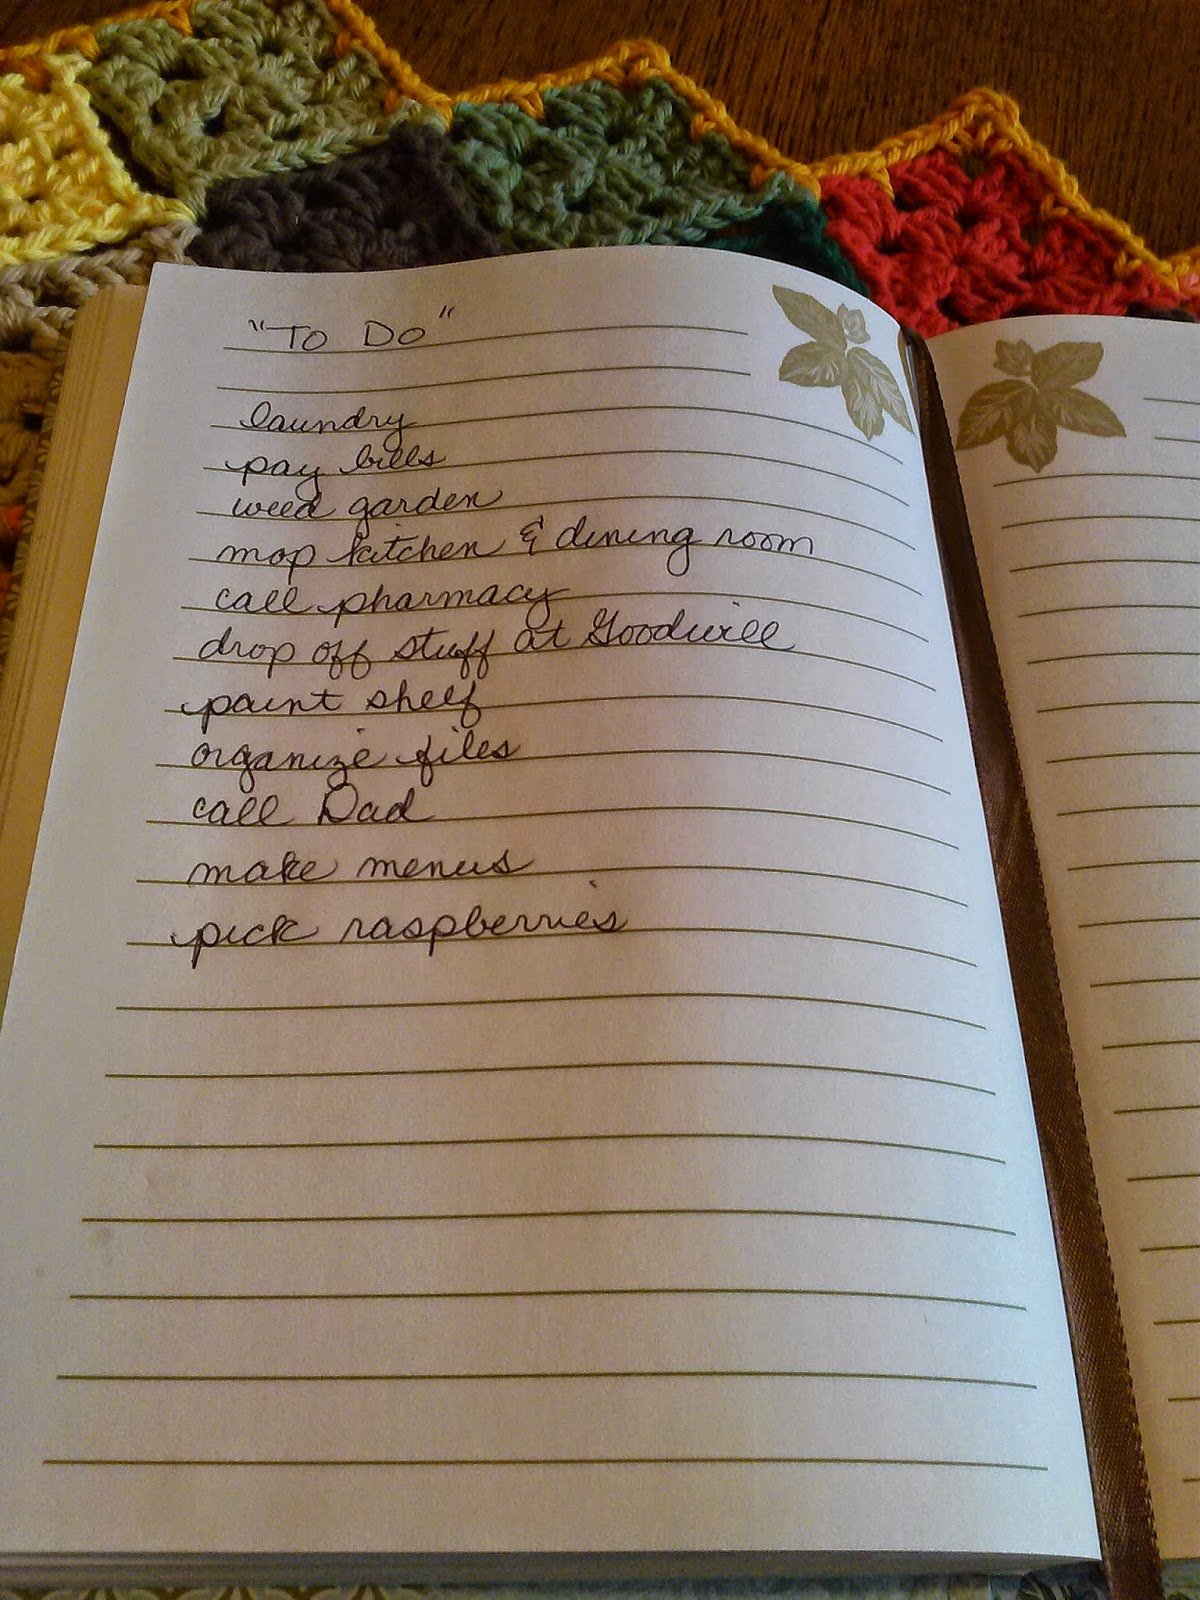 "To Do"
laundry
pay bills
weed garden
mop kitchen & dining room
call pharmacy
drop off stuff at Goodwill
paint shelf
organize files
call Dad
make menus
pick raspberries